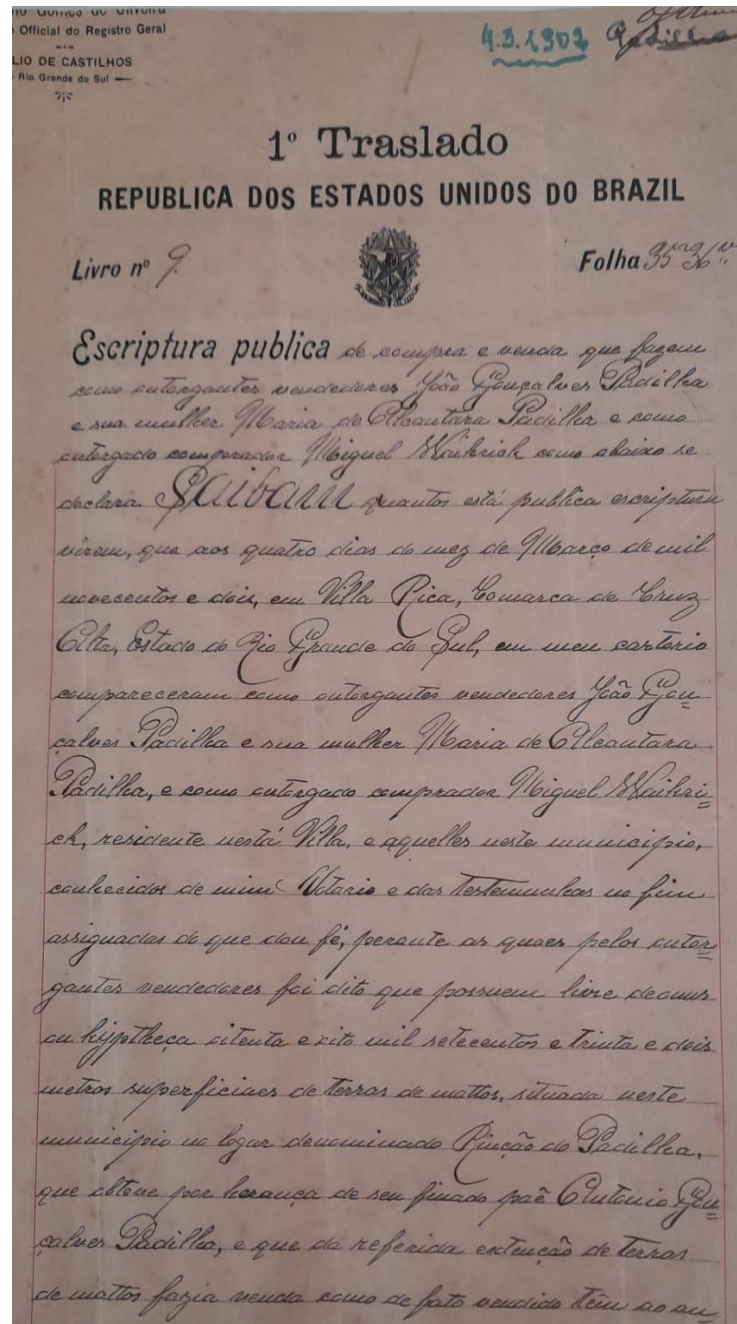 Gomes de Oliveira
Official do Registro Geral
LIO DE CASTILHOS
Rio Grande do Sul —
4.3.1902 Padilha
1º Traslado
REPUBLICA DOS ESTADOS UNIDOS DO BRAZIL
Livro nº 9. Folha 35 36
Escriptura publica de compra e venda que fazem
como outorgantes vendedores João Gonçalves Padilha
e sua mulher Maria de Alcantara Padilha e como
outorgado comprador Miguel Waihrich como abaixo se
declara Saibam quantos está publica escriptura
virem, que aos quatro dias do mez de Março de mil
novecentos e dois, em Villa Rica, Comarca de Cruz
Alta, Estado do Rio Grande do Sul, em meu cartorio
compareceram como outorgantes vendedores João Gon=
çalves Padilha e sua mulher Maria de Alcantara
Padilha, e como outorgado comprador Miguel Waihri=
ch, residente nestá Villa, e aquelles neste municipio,
conhecidos de mim Notario e das testemunhas no fim
assignadas do que dou fé, perante as quaes pelos outor=
gantes vendedores foi dito que possuem livre de onus
ou hyptheça oitenta e oito mil setecentos e trinta e dois
metros superficiaes de terras de mattos, situada neste
municipio no logar denominado Rincão do Padilha,
que obteve por herança de seu finado paê Antonio Gon=
çalves Padilha, e que da referida extenção de terras
de mattos fazia venda como de fato vendido têm ao ou=